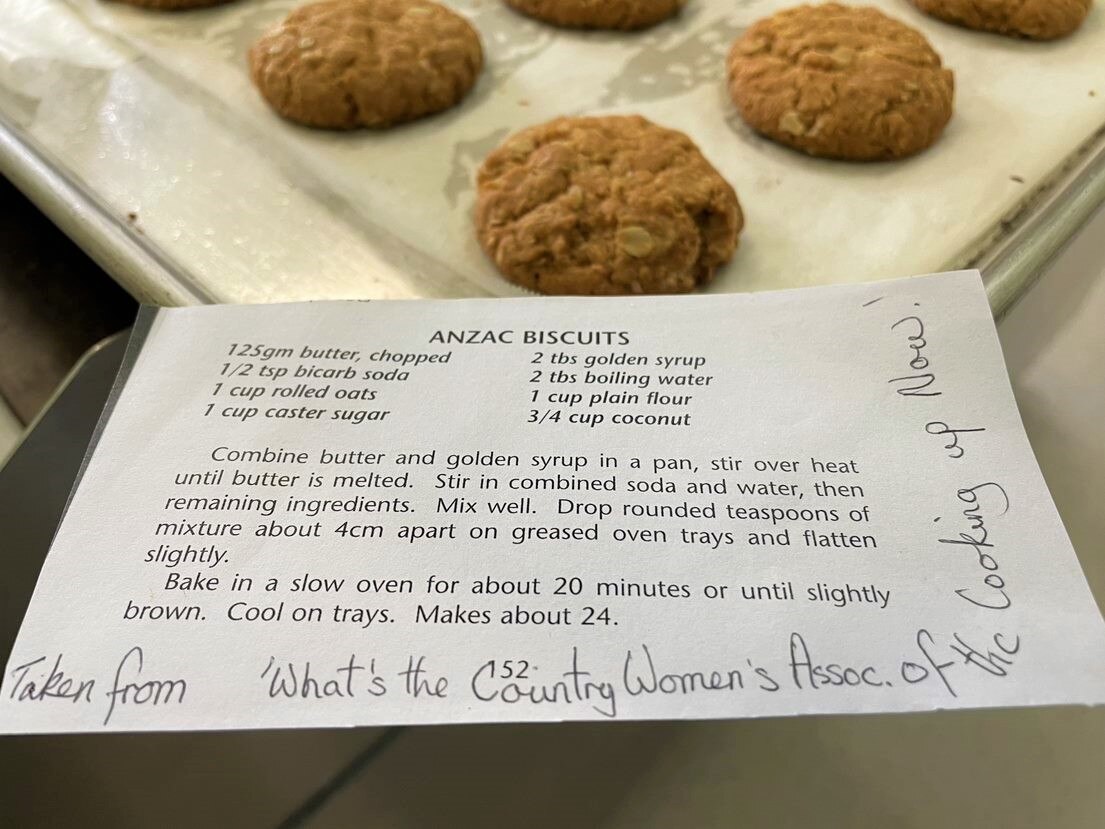 ANZAC BISCUITS
125gm butter, chopped
1/2 tsp bicarb soda
1 cup rolled oats
1 cup caster sugar
2 tbs golden syrup
2 tbs boiling water
1 cup plain flour
3/4 cup coconut
Combine butter and golden syrup in a pan, stir over heat
until butter is melted. Stir in combined soda and water, then
remaining ingredients. Mix well. Drop rounded teaspoons of
mixture about 4cm apart on greased oven trays and flatten
slightly.
Bake in a slow oven for about 20 minutes or until slightly
brown. Cool on trays. Makes about 24.
152
Taken from 'What's the Country Women's Assoc. of the Cooking up Now!'